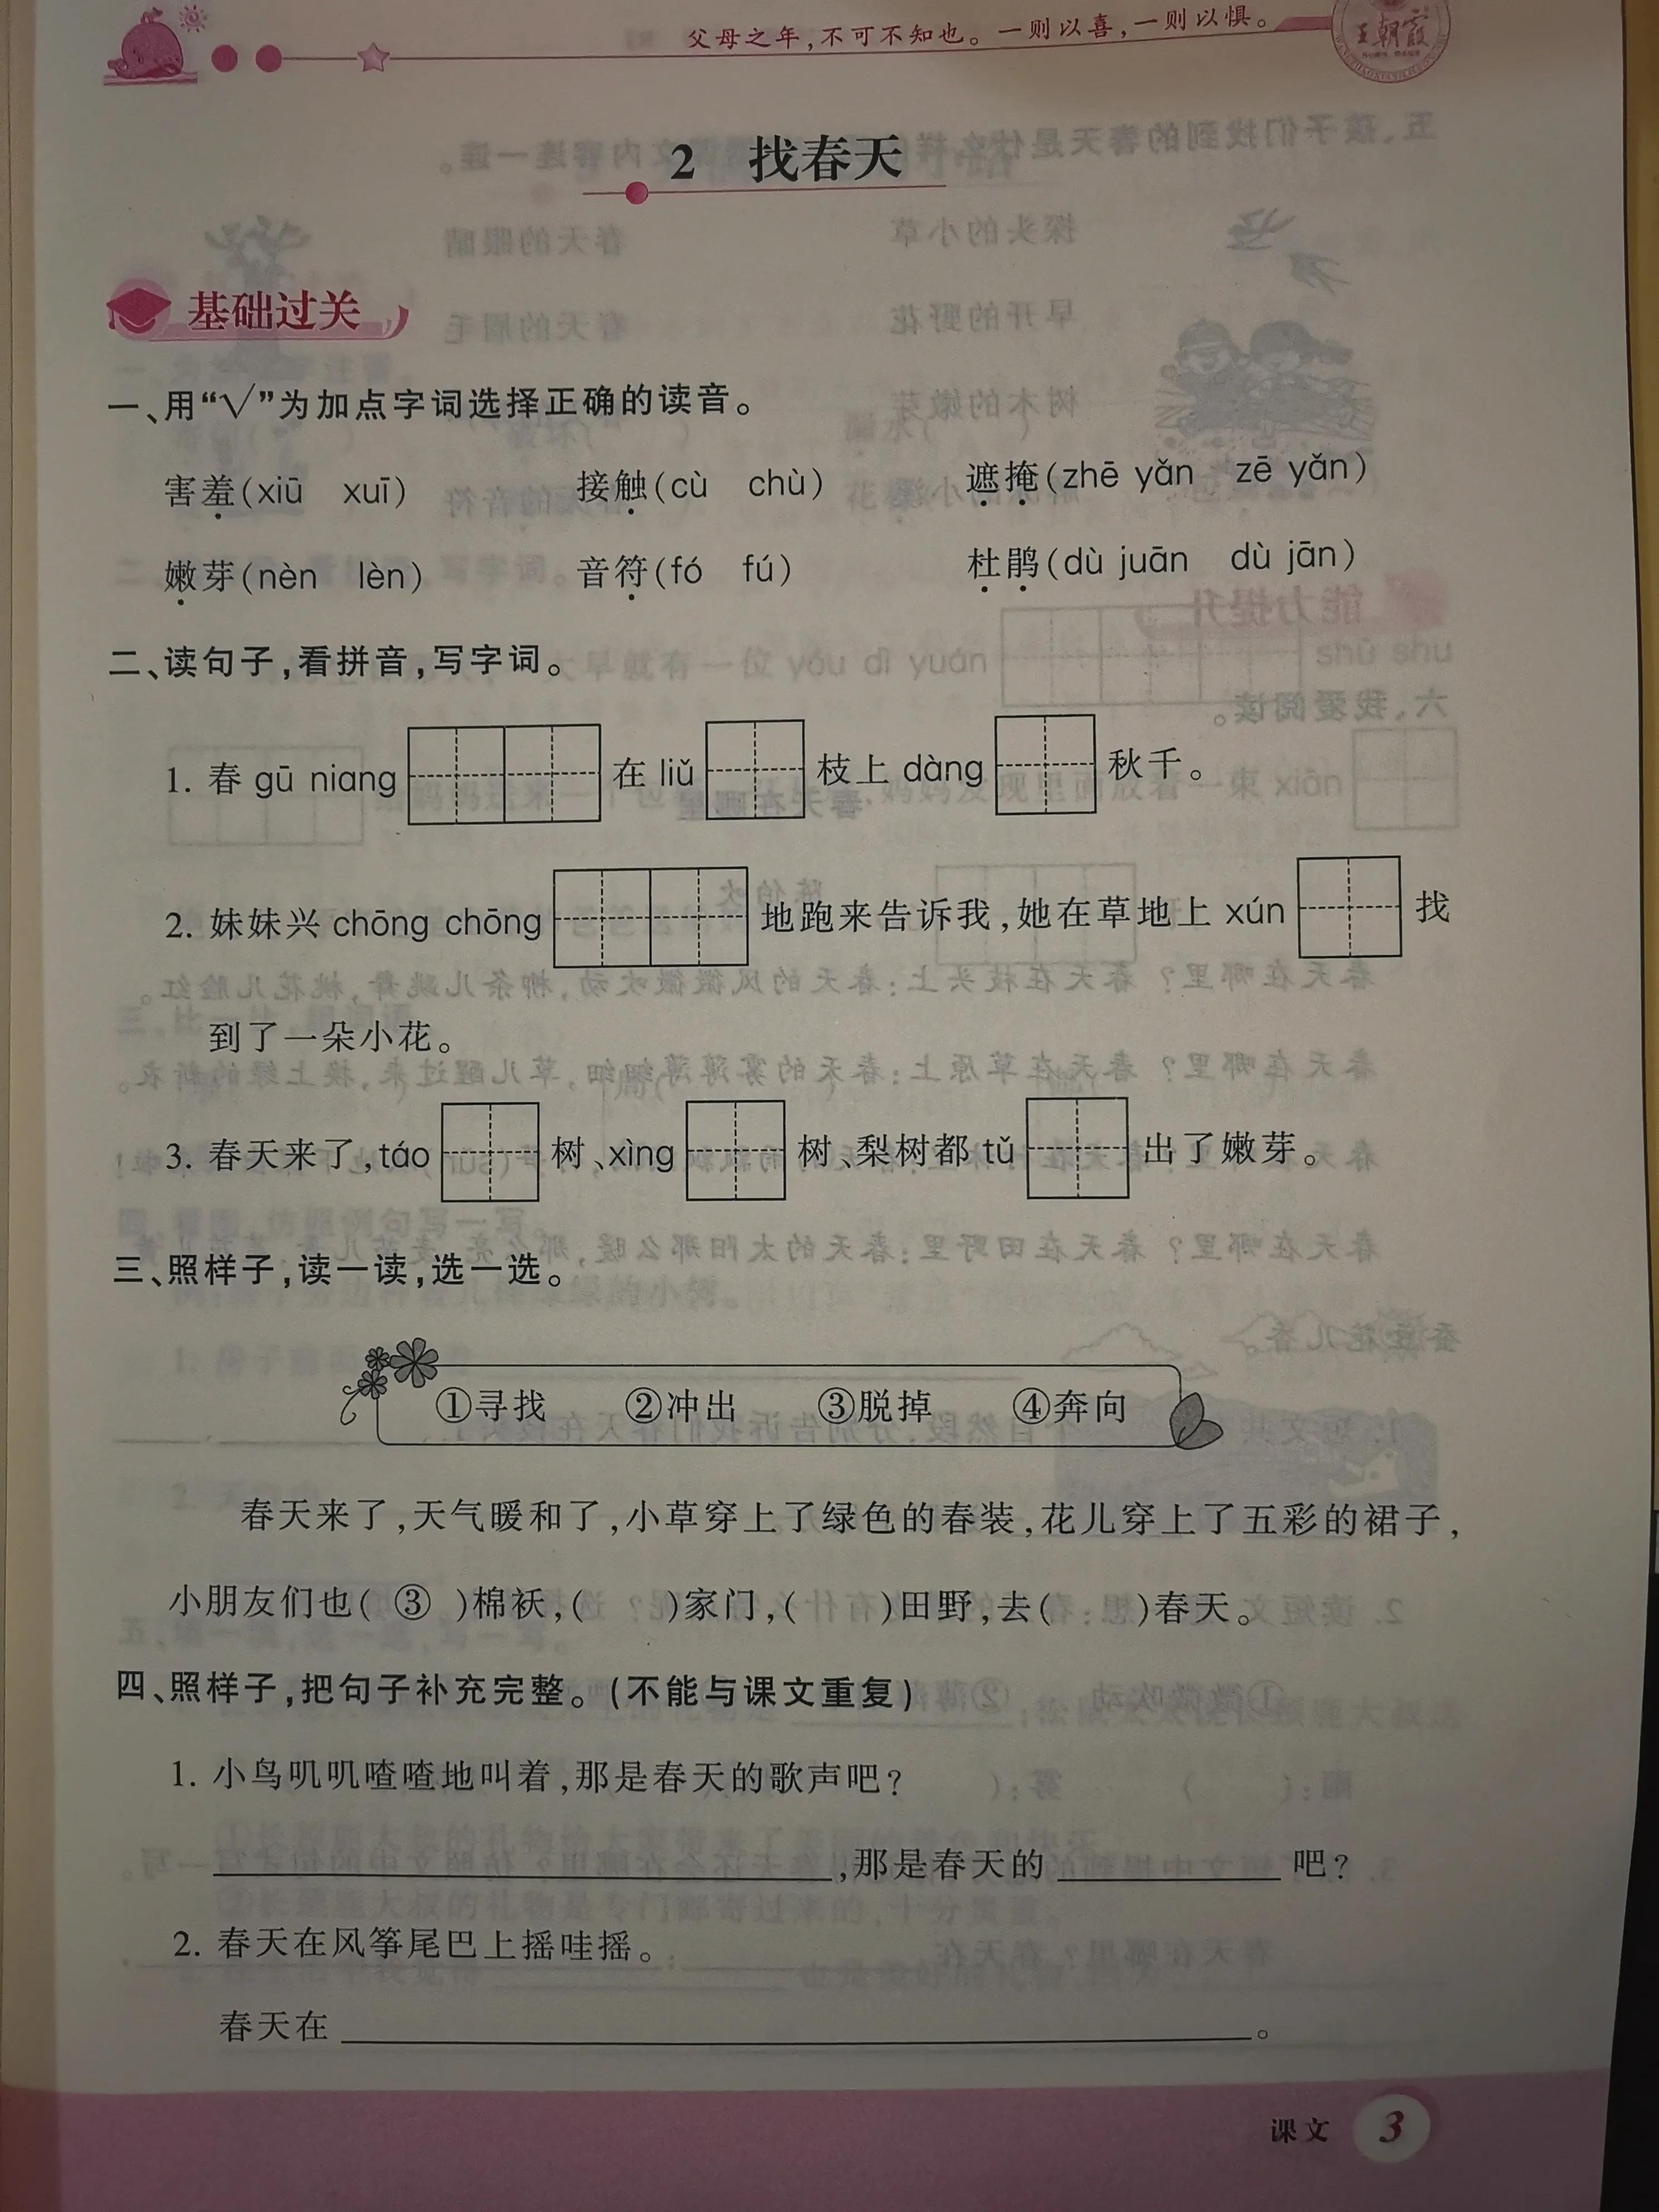 父母之年,不可不知也。一则以喜,一则以惧。
王朝霞
2 找春天
基础过关
一、用“√”为加点字词选择正确的读音。
害羞(xiū xuī) 接触(cù chù) 遮掩(zhē yǎn zē yǎn)
嫩芽(nèn lèn) 音符(fó fú) 杜鹃(dù juān dù jān)
二、读句子,看拼音,写字词。
1. 春 gū niang 在 liǔ 枝上 dàng 秋千。
2. 妹妹兴 chōng chōng 地跑来告诉我,她在草地上 xún 找
到了一朵小花。
3. 春天来了,táo 树、xìng 树、梨树都 tǔ 出了嫩芽。
三、照样子,读一读,选一选。
①寻找 ②冲出 ③脱掉 ④奔向
春天来了,天气暖和了,小草穿上了绿色的春装,花儿穿上了五彩的裙子,
小朋友们也( ③ )棉袄,( )家门,( )田野,去( )春天。
四、照样子,把句子补充完整。(不能与课文重复)
1. 小鸟叽叽喳喳地叫着,那是春天的歌声吧?
,那是春天的 吧?
2. 春天在风筝尾巴上摇哇摇。
春天在 。
课文 3